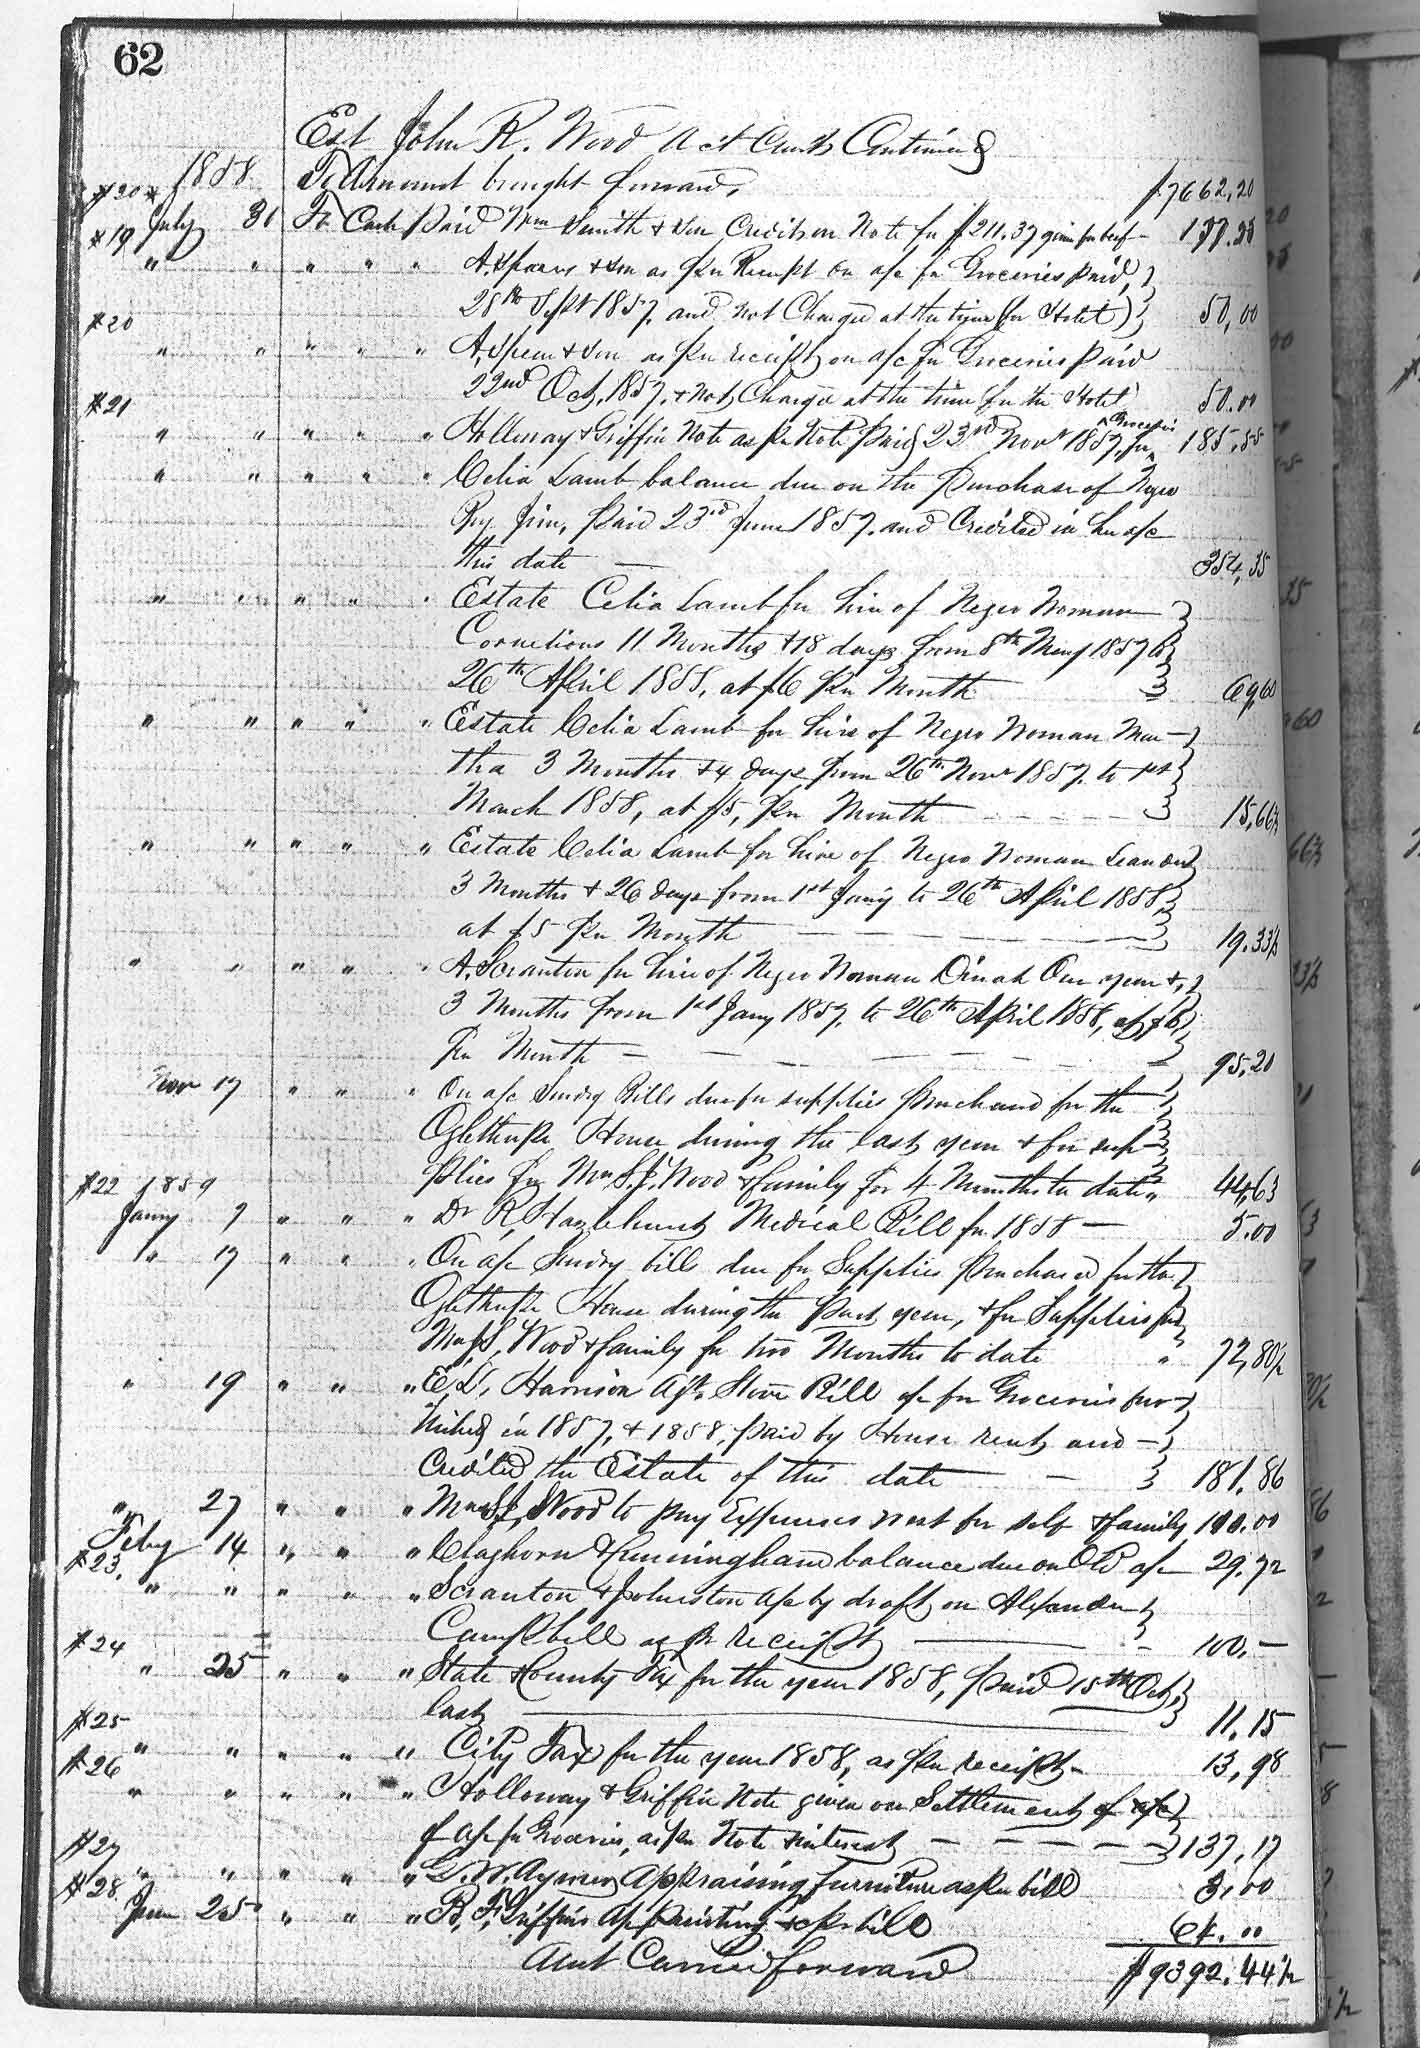 62
Est John R. Wood act Current Continued
1858 To Amount brought forward, $7662,20
#20
#19 July 31 To Cash Paid Wm Smith & Son Credit on Note for $211.37 given for beef
" " " " " A, Spears & Son as per Receipt on a/c for Groceries paid,
28th Sept 1857, and not Charged at the time (for Hotel) 50,00
#20
" " " " " A, Spears & Son as per receipt on a/c for Groceries paid
22nd Oct, 1857, & not Charged at the time for the Hotel 50.00
#21
" " " " " Holloway & Griffin Note as per Note Paid 23rd Novr 1857, for Groceries 185,55
" " " " " Celia Lamb balance due on the purchase of Negro
Boy Jim, paid 23rd June 1857, and Credited in her a/c
this date 354,35
" " " " " Estate Celia Lamb for hire of Negro Woman
11 Months & 18 days from 8th May 1857 to
26th April 1858, at $6 per Month 69,60
" " " " " Estate Celia Lamb for hire of Negro Woman Mar-
tha 3 Months & 4 days from 26th Novr 1857, to 1st
March 1858, at $5, per Month 15,66⅔
" " " " " Estate Celia Lamb for hire of Negro Woman
3 Months & 26 days from 1st Jany to 26th April 1858,
at $5 per Month 19.33⅓
" " " " " A. Scranton for hire of Negro Woman Dinah One year &
3 Months from 1st Jany 1857, to 26th April 1858, at $6
per Month 95,20
Nov 17 " " " On a/c Sundry Bills due for supplies purchased for the
Oglethorpe House during the last year & for sup-
plies for Mrs S. J. Wood & family for 4 Months to date 44,63
#22 1859
Jany 7 " " " Dr R, Hazlehurst Medical Bill for 1858 5.00
" 17 " " " On a/c Sundry bills due for Supplies purchased for the
Oglethorpe House during the past year, & for Supplies for
Mrs S, Wood & family for two Months to date " 72,80½
" 19 " " " E, L, Harrison Agt, Store Bill a/c for Groceries fur-
nished in 1857, & 1858, paid by House rent and
Credited the Estate of this date 181.86
" 27 " " " Mrs S J, Wood to pay Expenses North for self & family 100.00
Feby 14 " " " Claghorn & Cunningham balance due on Old a/c 29.72
#23.
" " " " " Scranton & Johnston a/c by draft on Alexander
Campbell as per receipt 100.—
#24
" 25 " " " State & County Tax for the year 1858, paid 15th Oct,
last 11.15
#25
" " " " " City Tax for the year 1858, as per receipt 13,98
#26
" " " " " Holloway & Griffin Note given on Settlement of a/c
of a/c for Groceries, as per Note & interest 137,17
#27
" " " " " G. W. Aymar, Appraising furniture as per bill 3,00
#28
June 25 " " " B, F, Griffins a/c painting &c per bill 64.00
Amt Carried forward $9392.44½